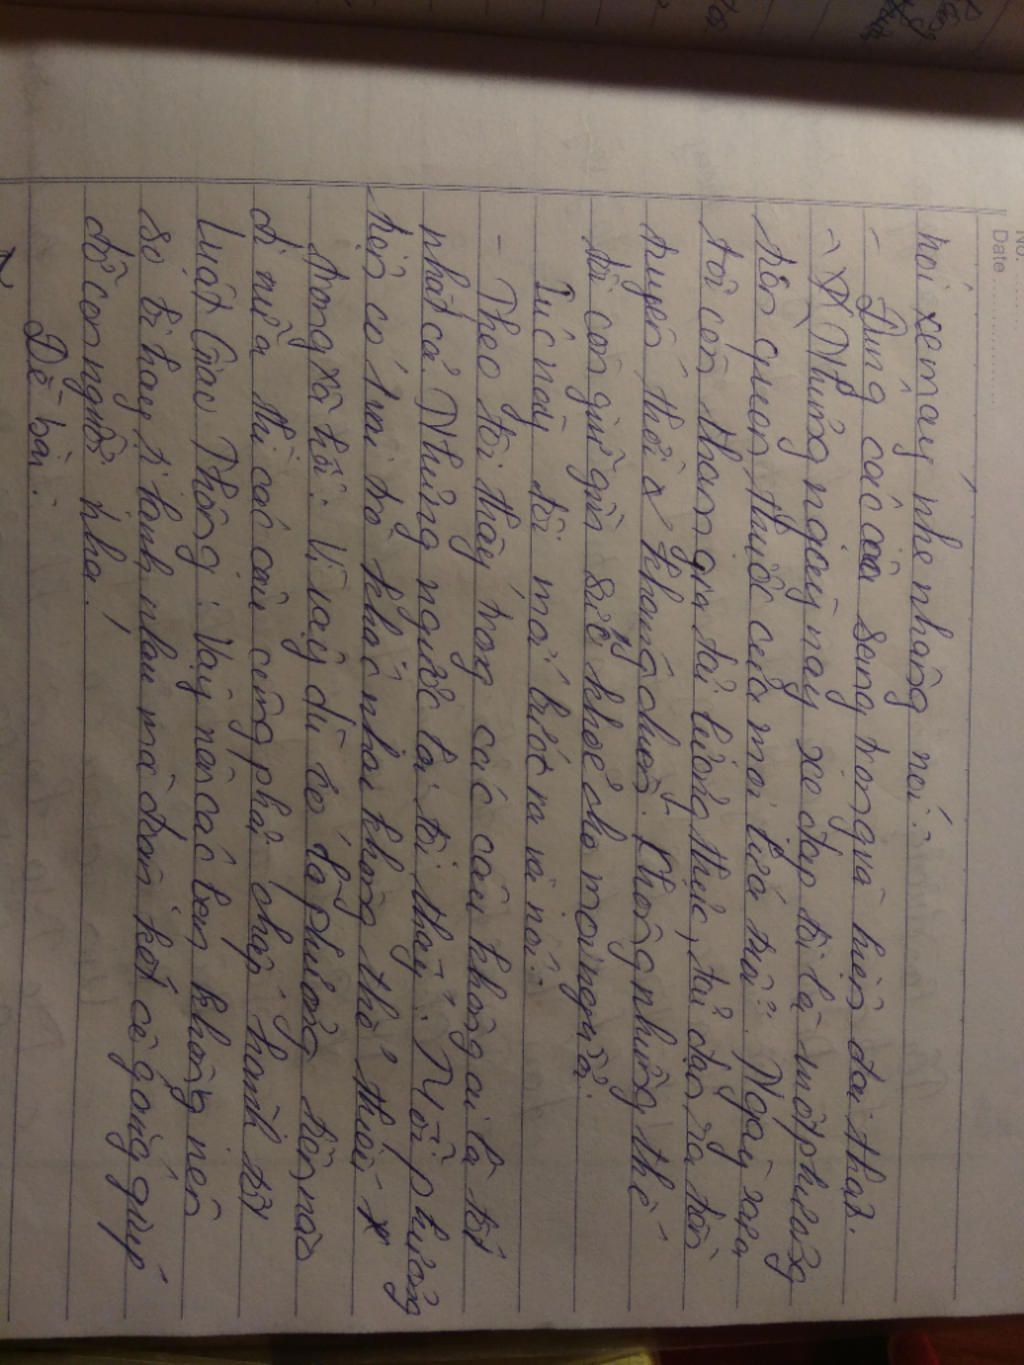 No. ......
Date ............
nói xe máy nhẹ nhàng nói:
- Đúng các cậu sang trọng và hiện đại thật.
- Những ngày nay xe đạp tôi là một phương
tiện quen thuộc của mọi lứa tuổi. Ngày xưa
tôi còn tham gia tải lương thực, tải đạn ra tiền
tuyến thời kì kháng chiến. Không những thế
tôi còn giữ gìn sức khoẻ cho mọi người.
Lúc này tôi mới bước ra và nói:
- Theo tôi thấy trong các cậu không ai là tốt
nhất cả. Những ngược lại tôi thấy: Mỗi phương
tiện có 1 vai trò khác nhau không thể thiếu
trong xã hội. Vì vậy dù có là phương tiện nào
đi nữa thì các cậu cũng phải chấp hành tốt
luật Giao Thông. Vậy nên các bạn không nên
so bì hay tị lạnh nhau mà đoàn kết cố gắng giúp
đỡ con người nha!
Đề bài: